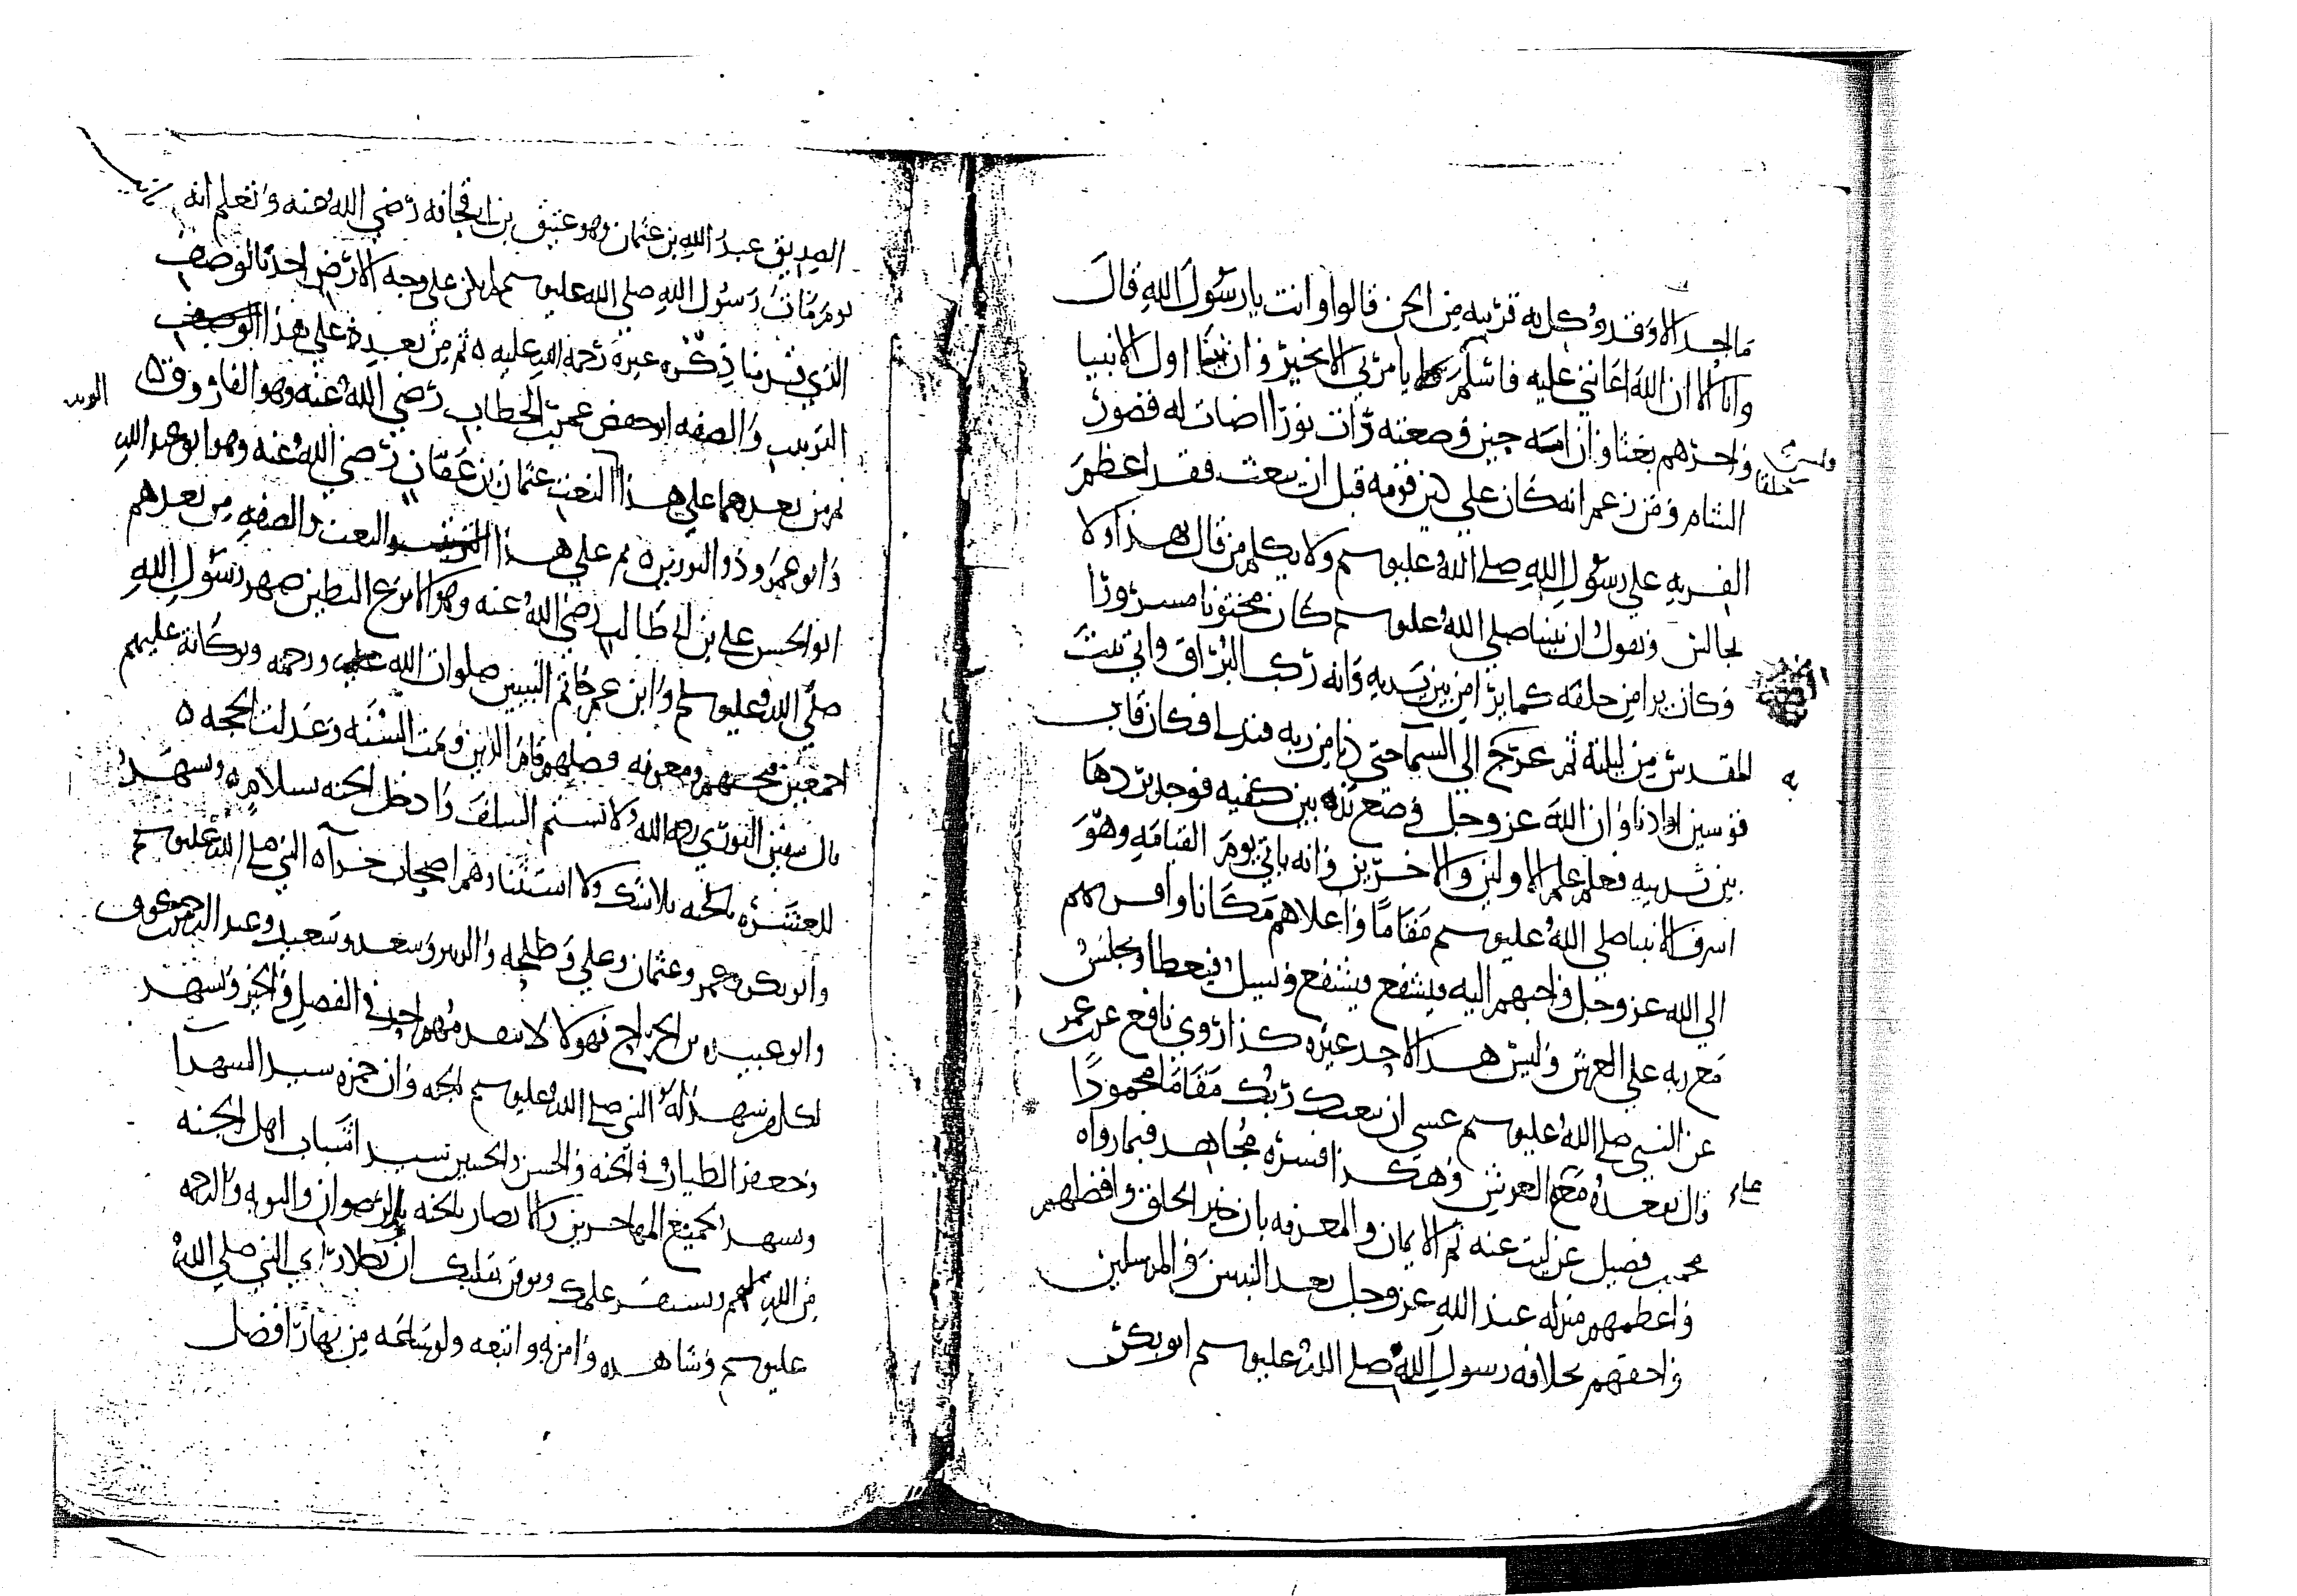 ما احد الا وقد وكل به قرينه من الجن قالوا وانت يا رسول الله قال
وانا الا ان الله اعانني عليه فاسلم يامرني الا بخير وان نبينا اول الانبيا
واخرهم بعثا وان امه حين وضعته رات نورا اضات له قصور
الشام ومن زعم انه كان على دين قومه قبل ان يبعث فقد اعظم
الفريه على رسول الله صلى الله عليه وسلم ولا يكلم من قال بهذا ولا
يجالس ونقول ان نبينا صلى الله عليه وسلم كان مختونا مسرورا
وكان يرا من خلفه كما يرا من بين يديه وانه ركب البراق واتي بيت
المقدس من ليلته ثم عرج الي السما حتي دنا من ربه فتدلى فكان قاب
قوسين او ادنا وان الله عز وجل وضع يده بين كتفيه فوجد بردها
بين ثدييه فعلم علم الاولين والاخرين وانه ياتي يوم القيامه وهو
اشرف الانبيا صلي الله عليه وسلم مقاما واعلاهم مكانا واقربهم
الي الله عز وجل واحبهم اليه فيشفع ويسل فيعطا ويجلس
مع ربه علي العرش وليس هذا لاحد غيره كذا روي نافع عن ابن عمر
عن النبي صلى الله عليه وسلم عسى ان يبعثك ربك مقاما محمودا
قال يقعده معه العرش وهكذا فسره مجاهد فيما رواه
محمد بن فضيل عن ليث عنه ثم الايمان والمعرفه بان خير الخلق وافضلهم
واعظمهم منزله عند الله عز وجل بعد النبيين والمرسلين
واحقهم بخلافه رسول الله صلى الله عليه وسلم ابو بكر
على
الصديق عبد الله بن عثمان وهو عتيق بن ابي قحافه رضي الله عنه وتعلم انه
يوم مات رسول الله صلي الله عليه وسلم لم يكن علي وجه الارض احد بالوصف
الذي قدمنا ذكره غيره رحمه الله عليه ثم من بعده علي هذا
الترتيب والصفه ابو حفص عمر بن الخطاب رضي الله عنه وهو الفاروق
ثم من بعدهما علي هذا النعت عثمان بن عفان رضي الله عنه وهو ابو عبد الله
وابو عمرو ذو النورين ثم علي هذا النعت والصفه من بعدهم
ابو الحسن علي بن ابي طالب رضي الله عنه وهو الانزع البطين صهر رسول الله
صلي الله عليه وسلم وابن عم خاتم النبيين صلوات الله ورحمته وبركاته عليهم
اجمعين فبحبهم ومعرفه فضلهم قام الدين وتمت السنه وعدلت الحجه
قال سفين الثوري رحمه الله لا تشتم السلف وادخل الجنه بسلام وتشهد
للعشره بالجنه بلا شك ولا استثنا وهم اصحاب حرآء النبي صلى الله عليه وسلم
وابو بكر وعمر وعثمان وعلي وطلحه والزبير وسعد وسعيد وعبد الرحمن بن عوف
وابو عبيده بن الجراح فهولا لا يتقدمهم احد في الفضل والخير وتشهد
لكل من شهد له النبي صلى الله عليه وسلم بالجنه وان حمزه سيد الشهدآ
وجعفر الطيار في الجنه والحسن والحسين سيدا شباب اهل الجنه
وتشهد لجميع المهاجرين والانصار بالجنه والرضوان والتوبه والرحمه
من الله لهم ويستقر علمك وتوقن بقلبك ان رجلا رأي النبي صلي الله
عليه وسلم وشاهده وامن به واتبعه ولو ساعه من نهار افضل